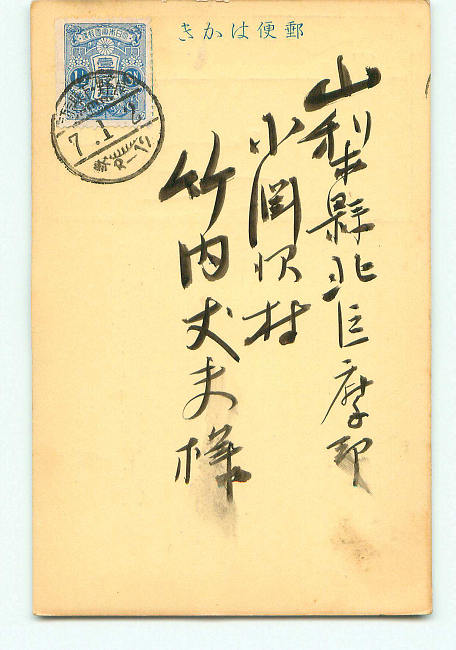 郵便はかき
山梨縣北巨摩郡
小淵沢村
竹内丈夫様
7.1.2